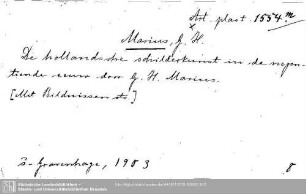 Art. plast. 1554 m
x
Marius, G. H.
De hollandsche schilderkunst in de negen-
tiende eeuw door G. H. Marius.
[Mit Bildnissen
's-Gravenhage, 1903
8
Sächsische Landesbibliothek -
Staats- und Universitätsbibliothek Dresden